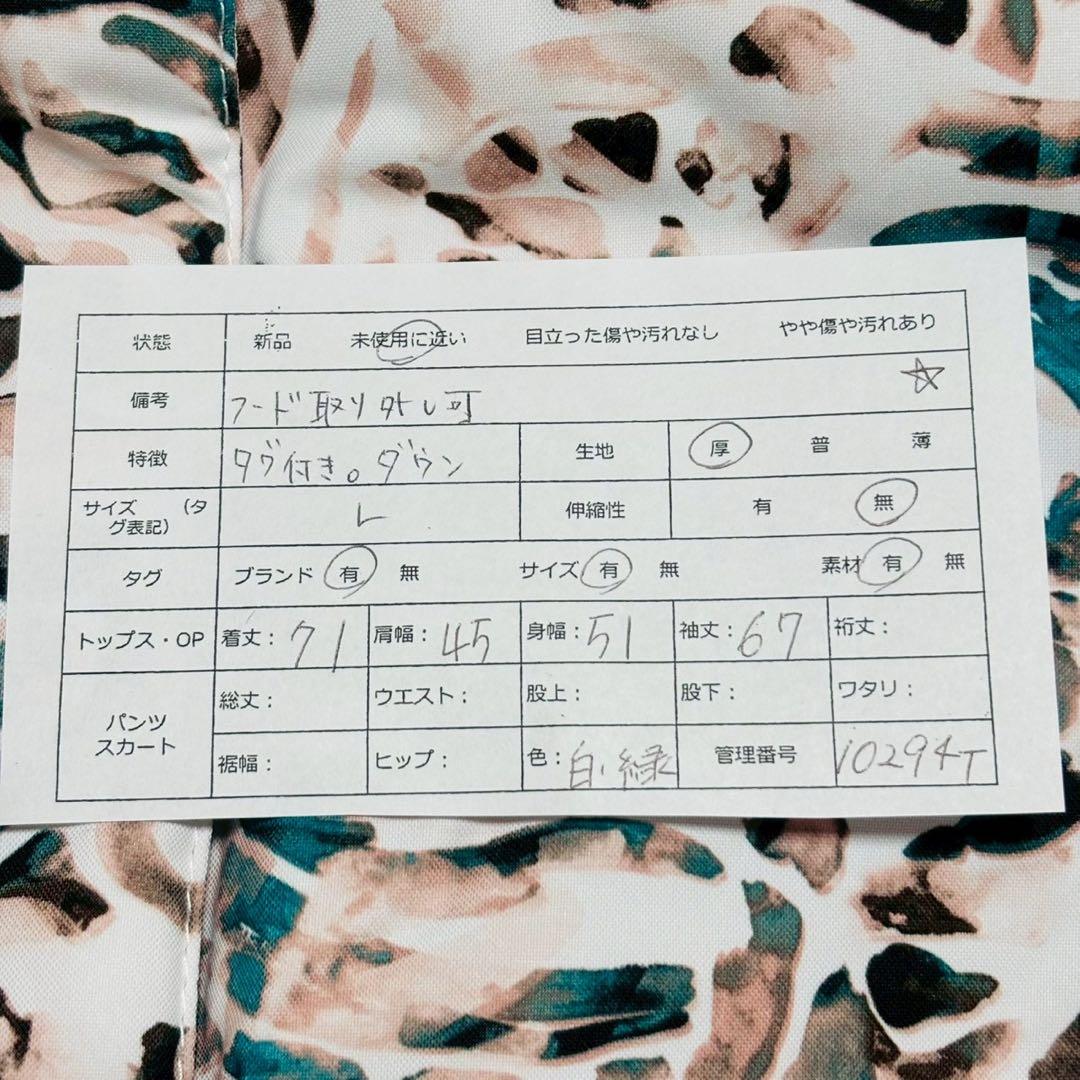 状態 新品 未使用に近い 目立った傷や汚れなし やや傷や汚れあり
備考 フード取り外し可 ☆
特徴 タグ付き。ダウン 生地 厚 普 薄
サイズ (タグ表記) L 伸縮性 有 無
タグ ブランド 有 無 サイズ 有 無 素材 有 無
トップス・OP 着丈: 71 肩幅: 45 身幅: 51 袖丈: 67 裄丈:
パンツ スカート 総丈: ウエスト: 股上: 股下: ワタリ:
裾幅: ヒップ: 色: 白、緑 管理番号 i0294T